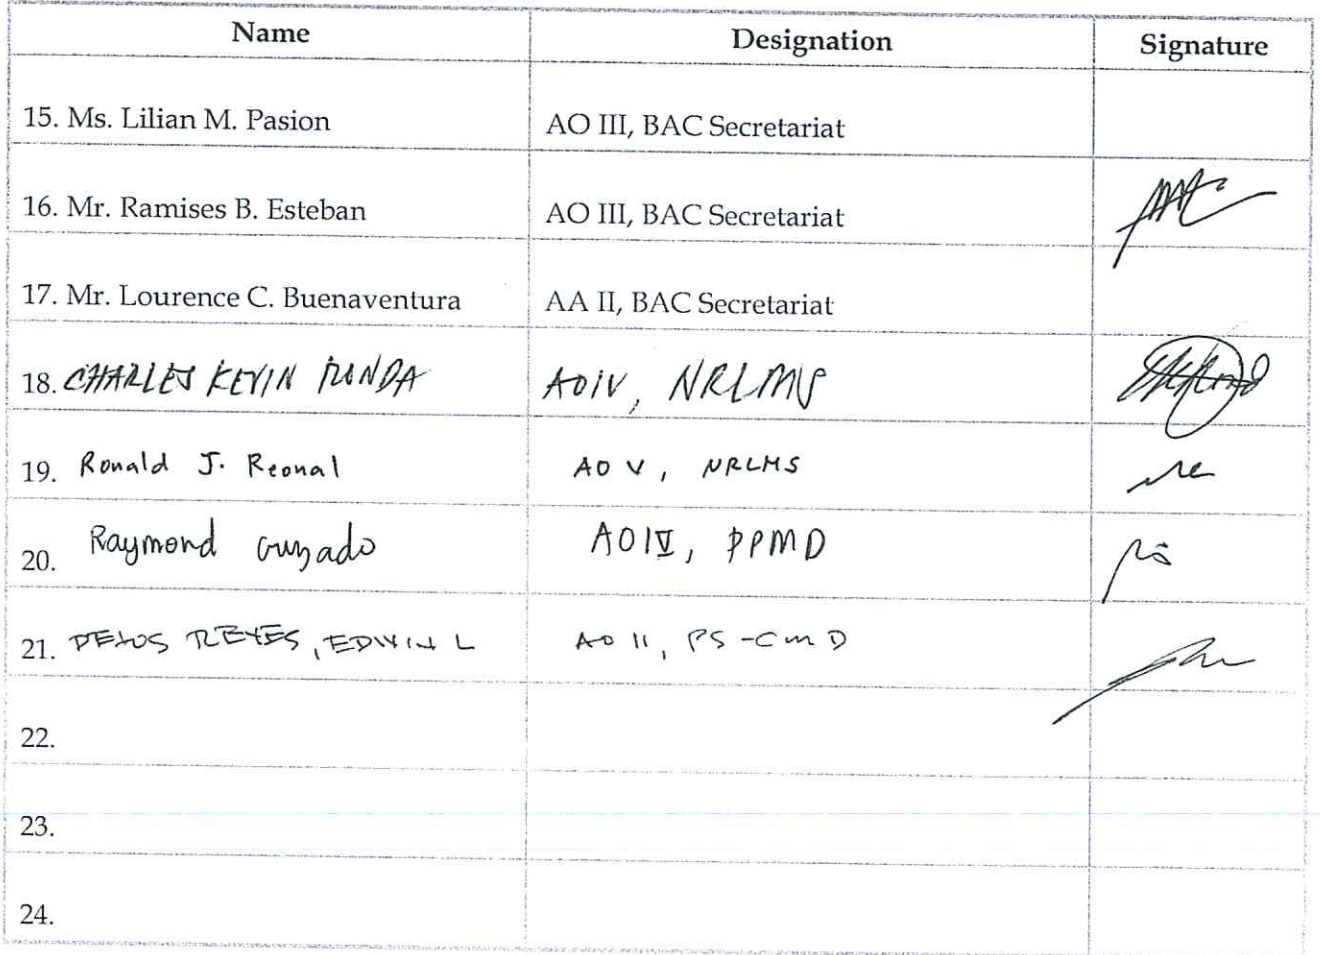 Name Designation Signature
15. Ms. Lilian M. Pasion AO III, BAC Secretariat
16. Mr. Ramises B. Esteban AO III, BAC Secretariat
17. Mr. Lourence C. Buenaventura AA II, BAC Secretariat
18. CHARLES KEVIN AOIV, NRLMS
19. Ronald J. Reonal AO V, NRLMS
20. Raymond AOIV, PPMD
21. DELOS REYES, EDWIN L AO II, PS-CMD
22.
23.
24.